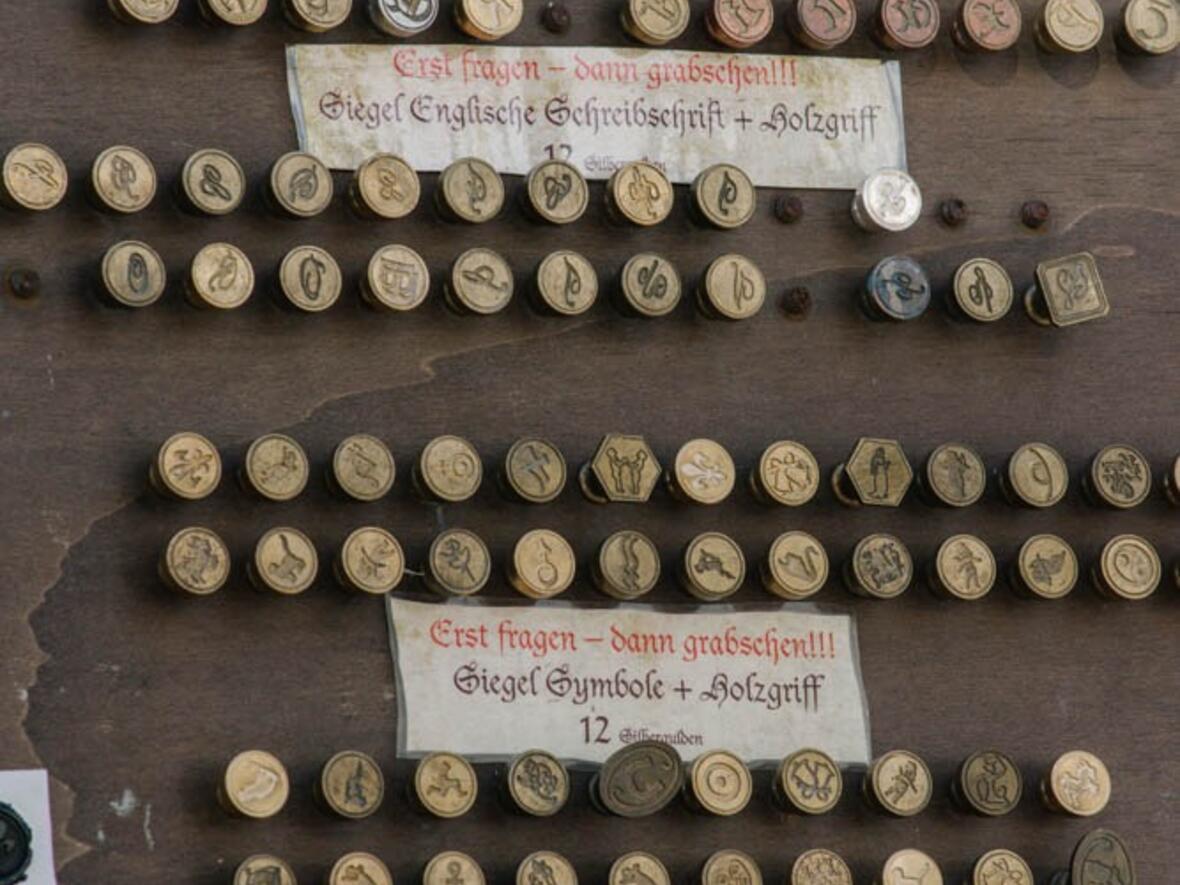 Erst fragen – dann grabschen!!!
Siegel Englische Schreibschrift + Holzgriff
12 Silbergulden
Erst fragen – dann grabschen!!!
Siegel Symbole + Holzgriff
12 Silbergulden